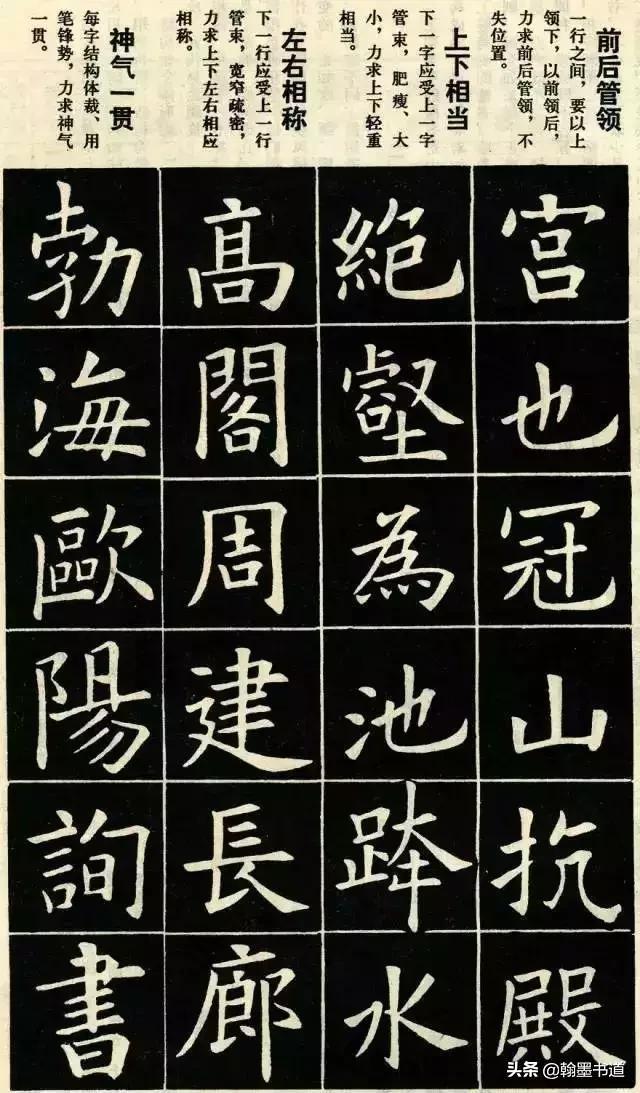 前后管领
一行之间，要以上
领下，以前领后，
力求前后管领，不
失位置。
上下相当
下一字应受上一字
管束，肥瘦、大
小，力求上下轻重
相当。
左右相称
下一行应受上一行
管束，宽窄疏密，
力求上下左右相应
相称。
神气一贯
每字结构体裁、用
笔锋势，力求神气
一贯。
宫也冠山抗殿
絶壑為池跨水
髙閣周建長廊
勃海歐陽詢書
头条 @翰墨书道